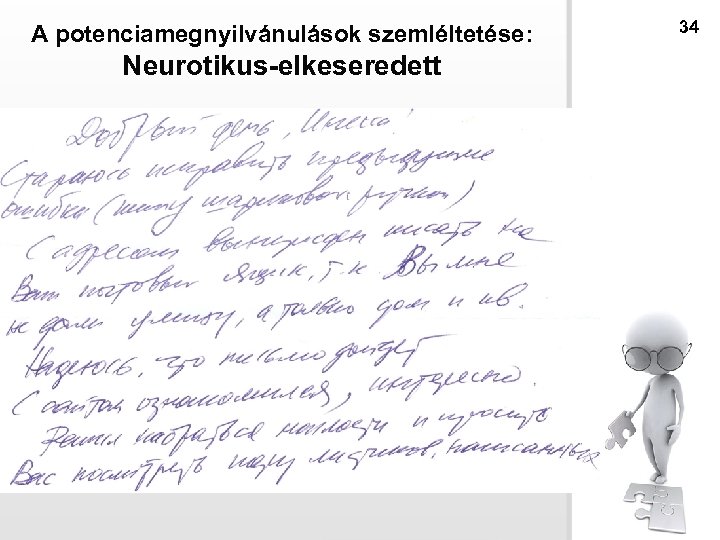 A potenciamegnyilvánulások szemléltetése:
Neurotikus-elkeseredett
34
Добрый день, Инесса!
Стараюсь исправить предыдущие
ошибки (пишу шариковой ручкой)
С адресом вынужден писать на
Ваш почтовый ящик, т.к. Вы мне
не дали улицу, а только дом и кв.
Надеюсь, что письмо дойдет
С сайтом ознакомился, интересно.
Решил набраться наглости и просить
Вас посмотреть пару листиков, написанных